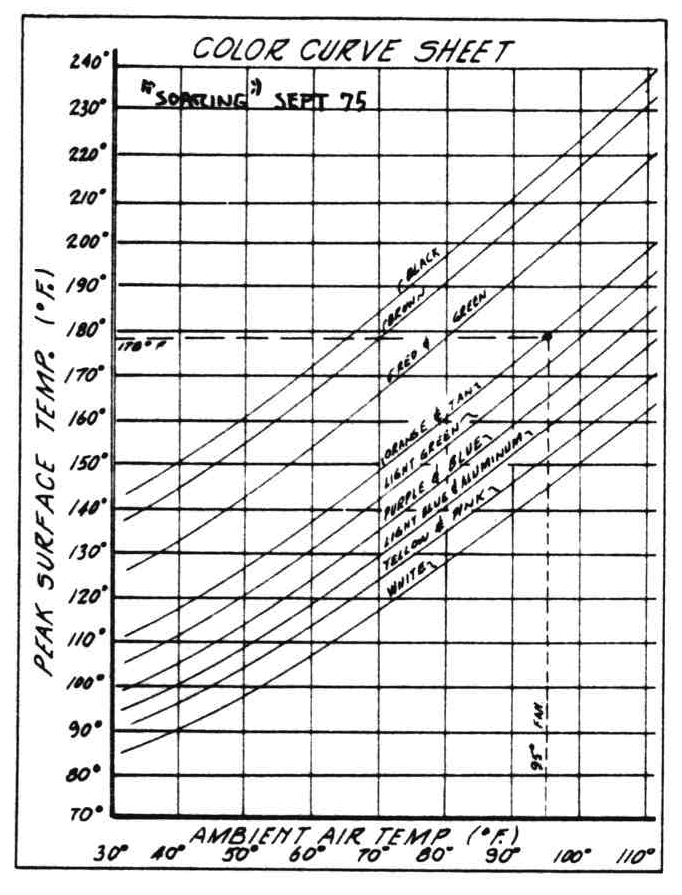 COLOR CURVE SHEET
"SOARING" SEPT 75
PEAK SURFACE TEMP. (°F.)
240°
230°
220°
210°
200°
190°
180°
178° F
170°
160°
150°
140°
130°
120°
110°
100°
90°
80°
70°
BLACK
BROWN
RED & GREEN
ORANGE & TAN
LIGHT GREEN
PURPLE & BLUE
LIGHT BLUE & ALUMINUM
YELLOW & PINK
WHITE
95° FAH
AMBIENT AIR TEMP (°F.)
30° 40° 50° 60° 70° 80° 90° 100° 110°